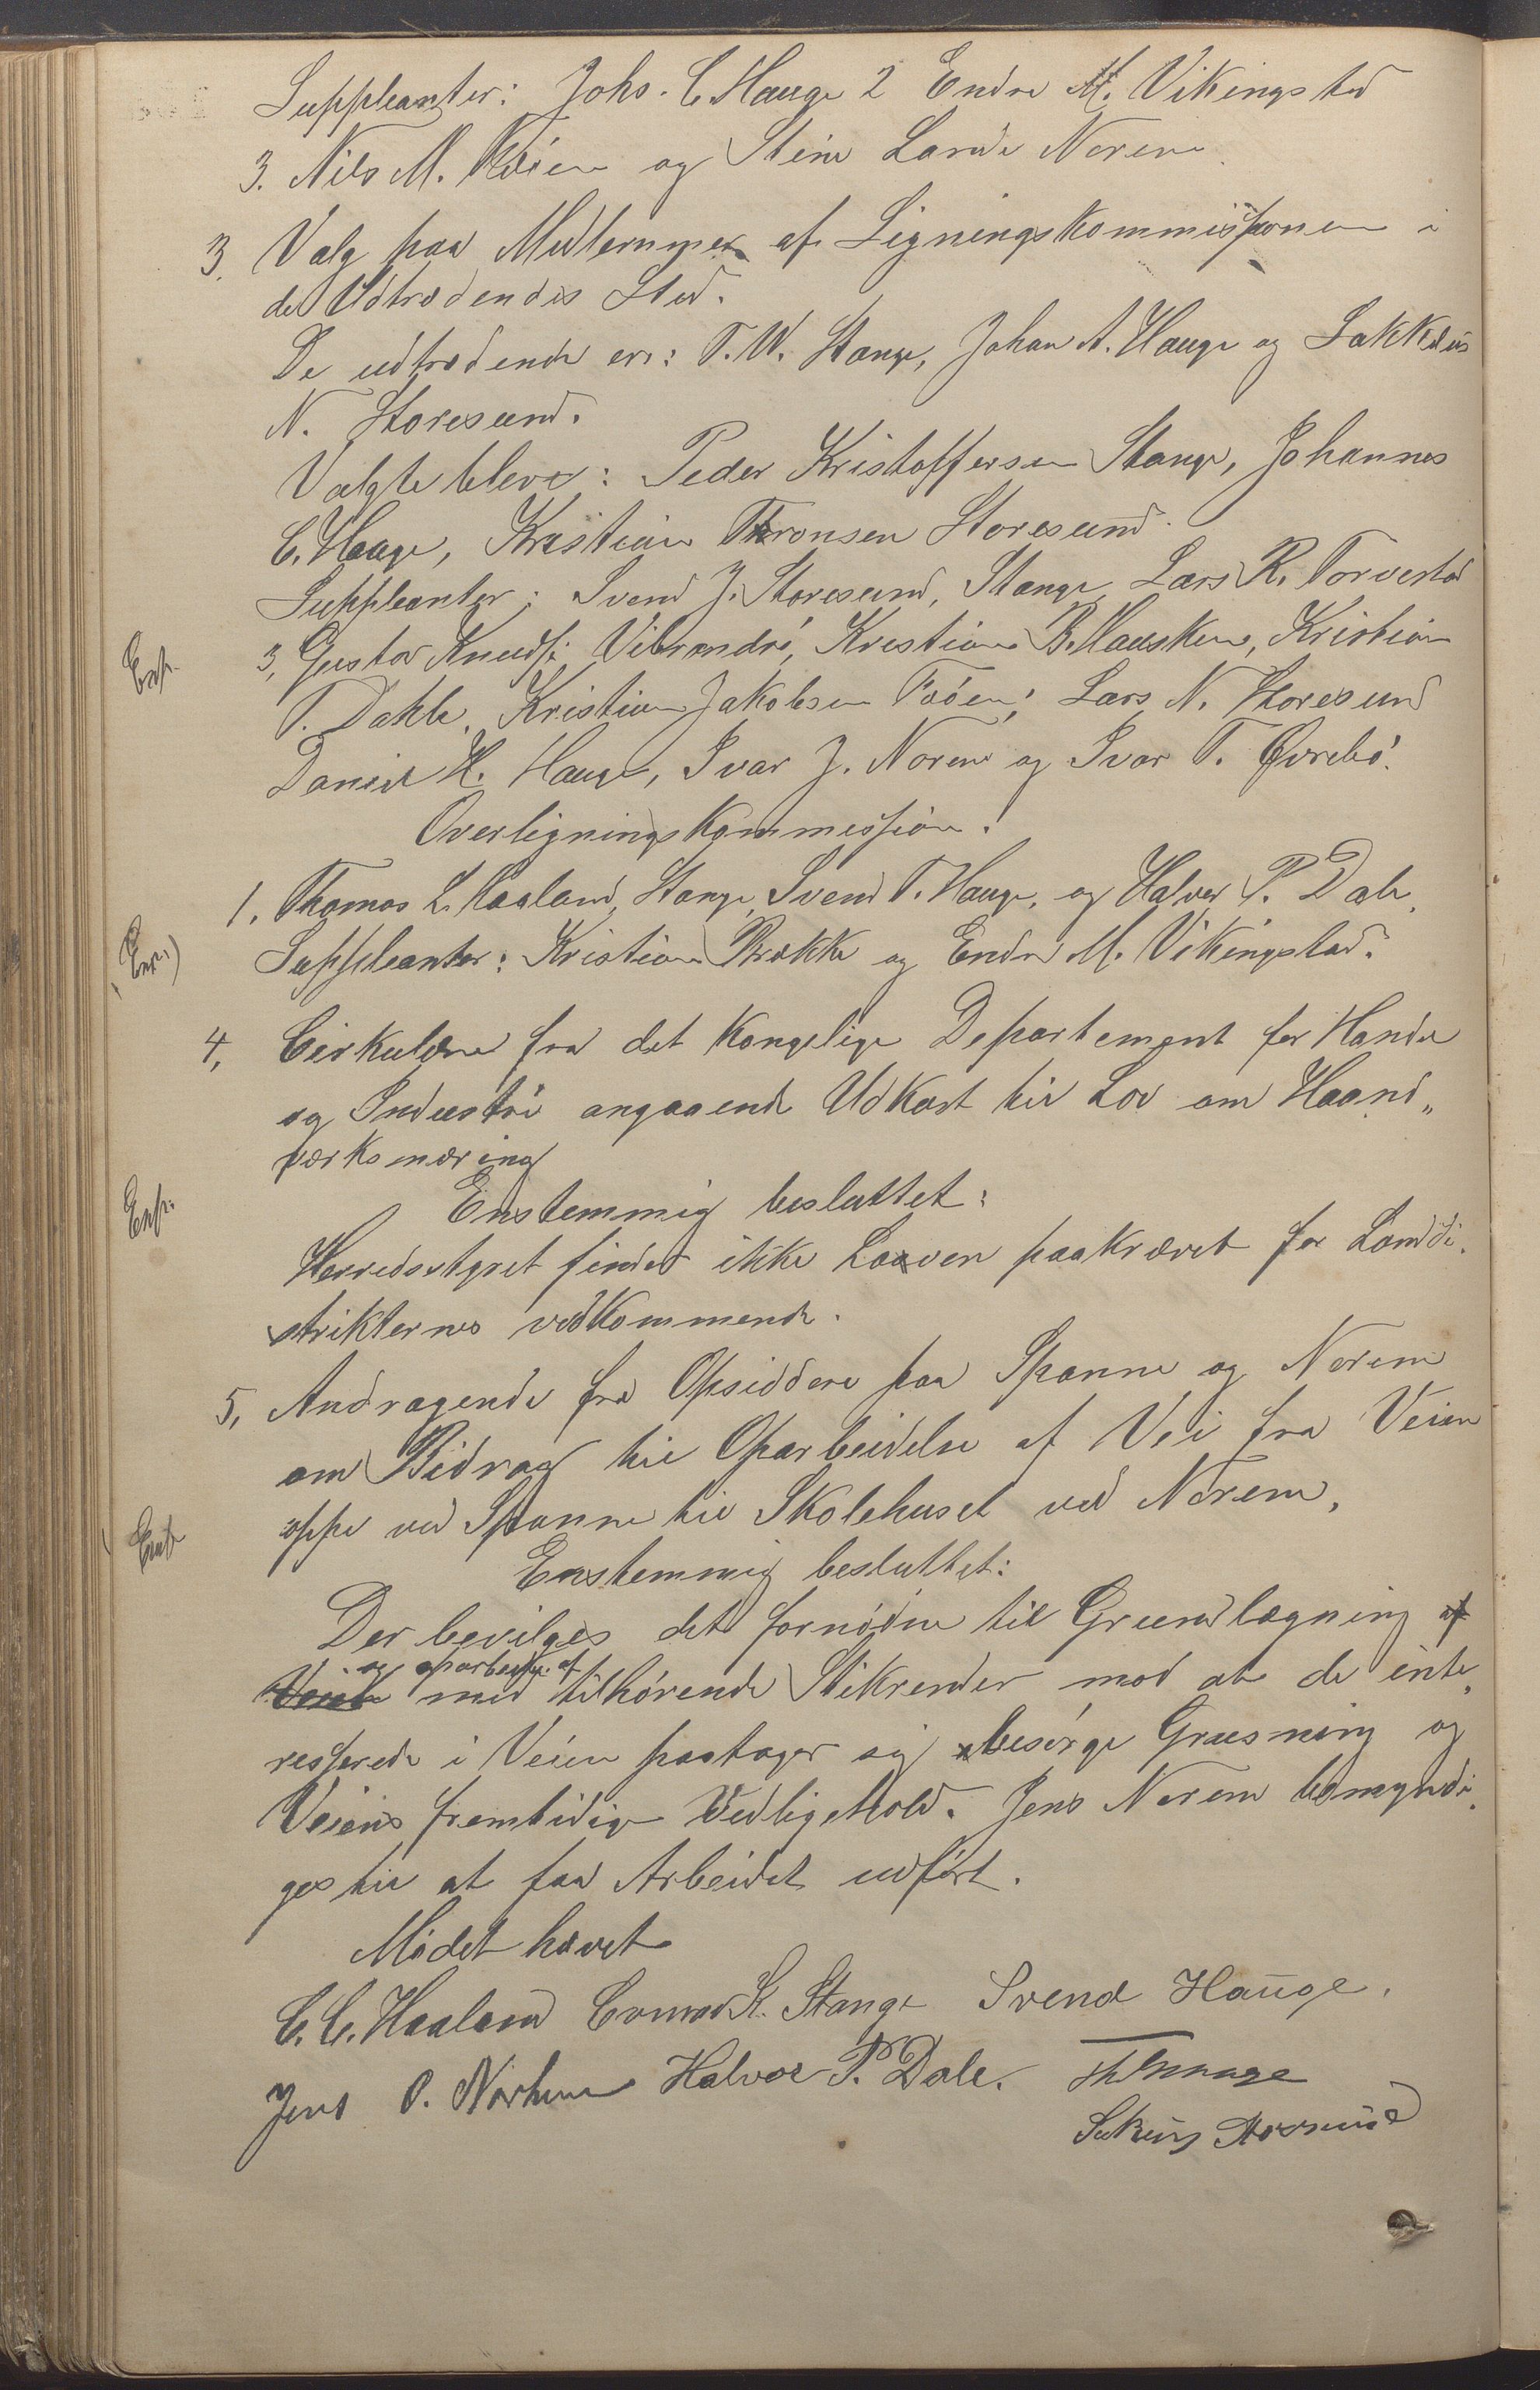 Suppleanter: Johs. C. Hauge 2 Endre M. Vikingstad
3. Nils M. og Steine Lande Norem
3. Valg paa Medlemmer af Ligningskommissionen i
de Udtrædendes Sted.
De udtrædende er: T. W. Stange, Johan A. Hauge og Sakkæus
N. Storesund.
Valgte blever: Peder Kristoffersen Stange, Johannes
C. Hauge, Kristian Thronsen Storesund.
Suppleanter: Svend J. Storesund, Stange, Lars R. Torvestad
3, Gustav Knuds. Vibrandsö, Kristian B. Hausken, Kristian
T. Dahle, Kristian Jakobsen Feöen, Lars N. Storesund
Daniel H. Hauge, Ivar J. Norem og Ivar T. Øvrebö.
Overligningskommission:
1. Thomas L. Haaland, Stange, Svend T. Hauge, og Halvor P. Dale.
Suppleanter: Kristian Brække og Endre M. Vikingstad.
4, Cirkulære fra det Kongelige Departement for Handel
og Industri angaaende Udkast til Lov om Haand„
værksnæring
Enstemmig besluttet:
Herredsstyret finder ikke Loven paakrævet for Landdi„
strikternes vedkommende.
5, Andragende fra Opsiddere paa Spanne og Norem
om Bidrag til Oparbeidelse af Vei fra Veien
oppe ved Spanne til Skolehuset ved Norem,
Enstemmig besluttet:
Der bevilges det fornödne til Grundlægning af
og oparbeidelse af
Veien med tilhörende Stikrender mod at de inte„
resserede i Veien paatager sig besörge Grusning og
Veiens fremtidige Vedligehold. Jens Norem bemyndi„
ges til at faa Arbeidet udfört.
Mödet hævet
C. C. Haaland Conrad K. Stange Svend Hauge.
Jens O. Norheim Halvor P. Dale.
Sakæus Storesund
Exp.
Exp.
Exp.
Exp.